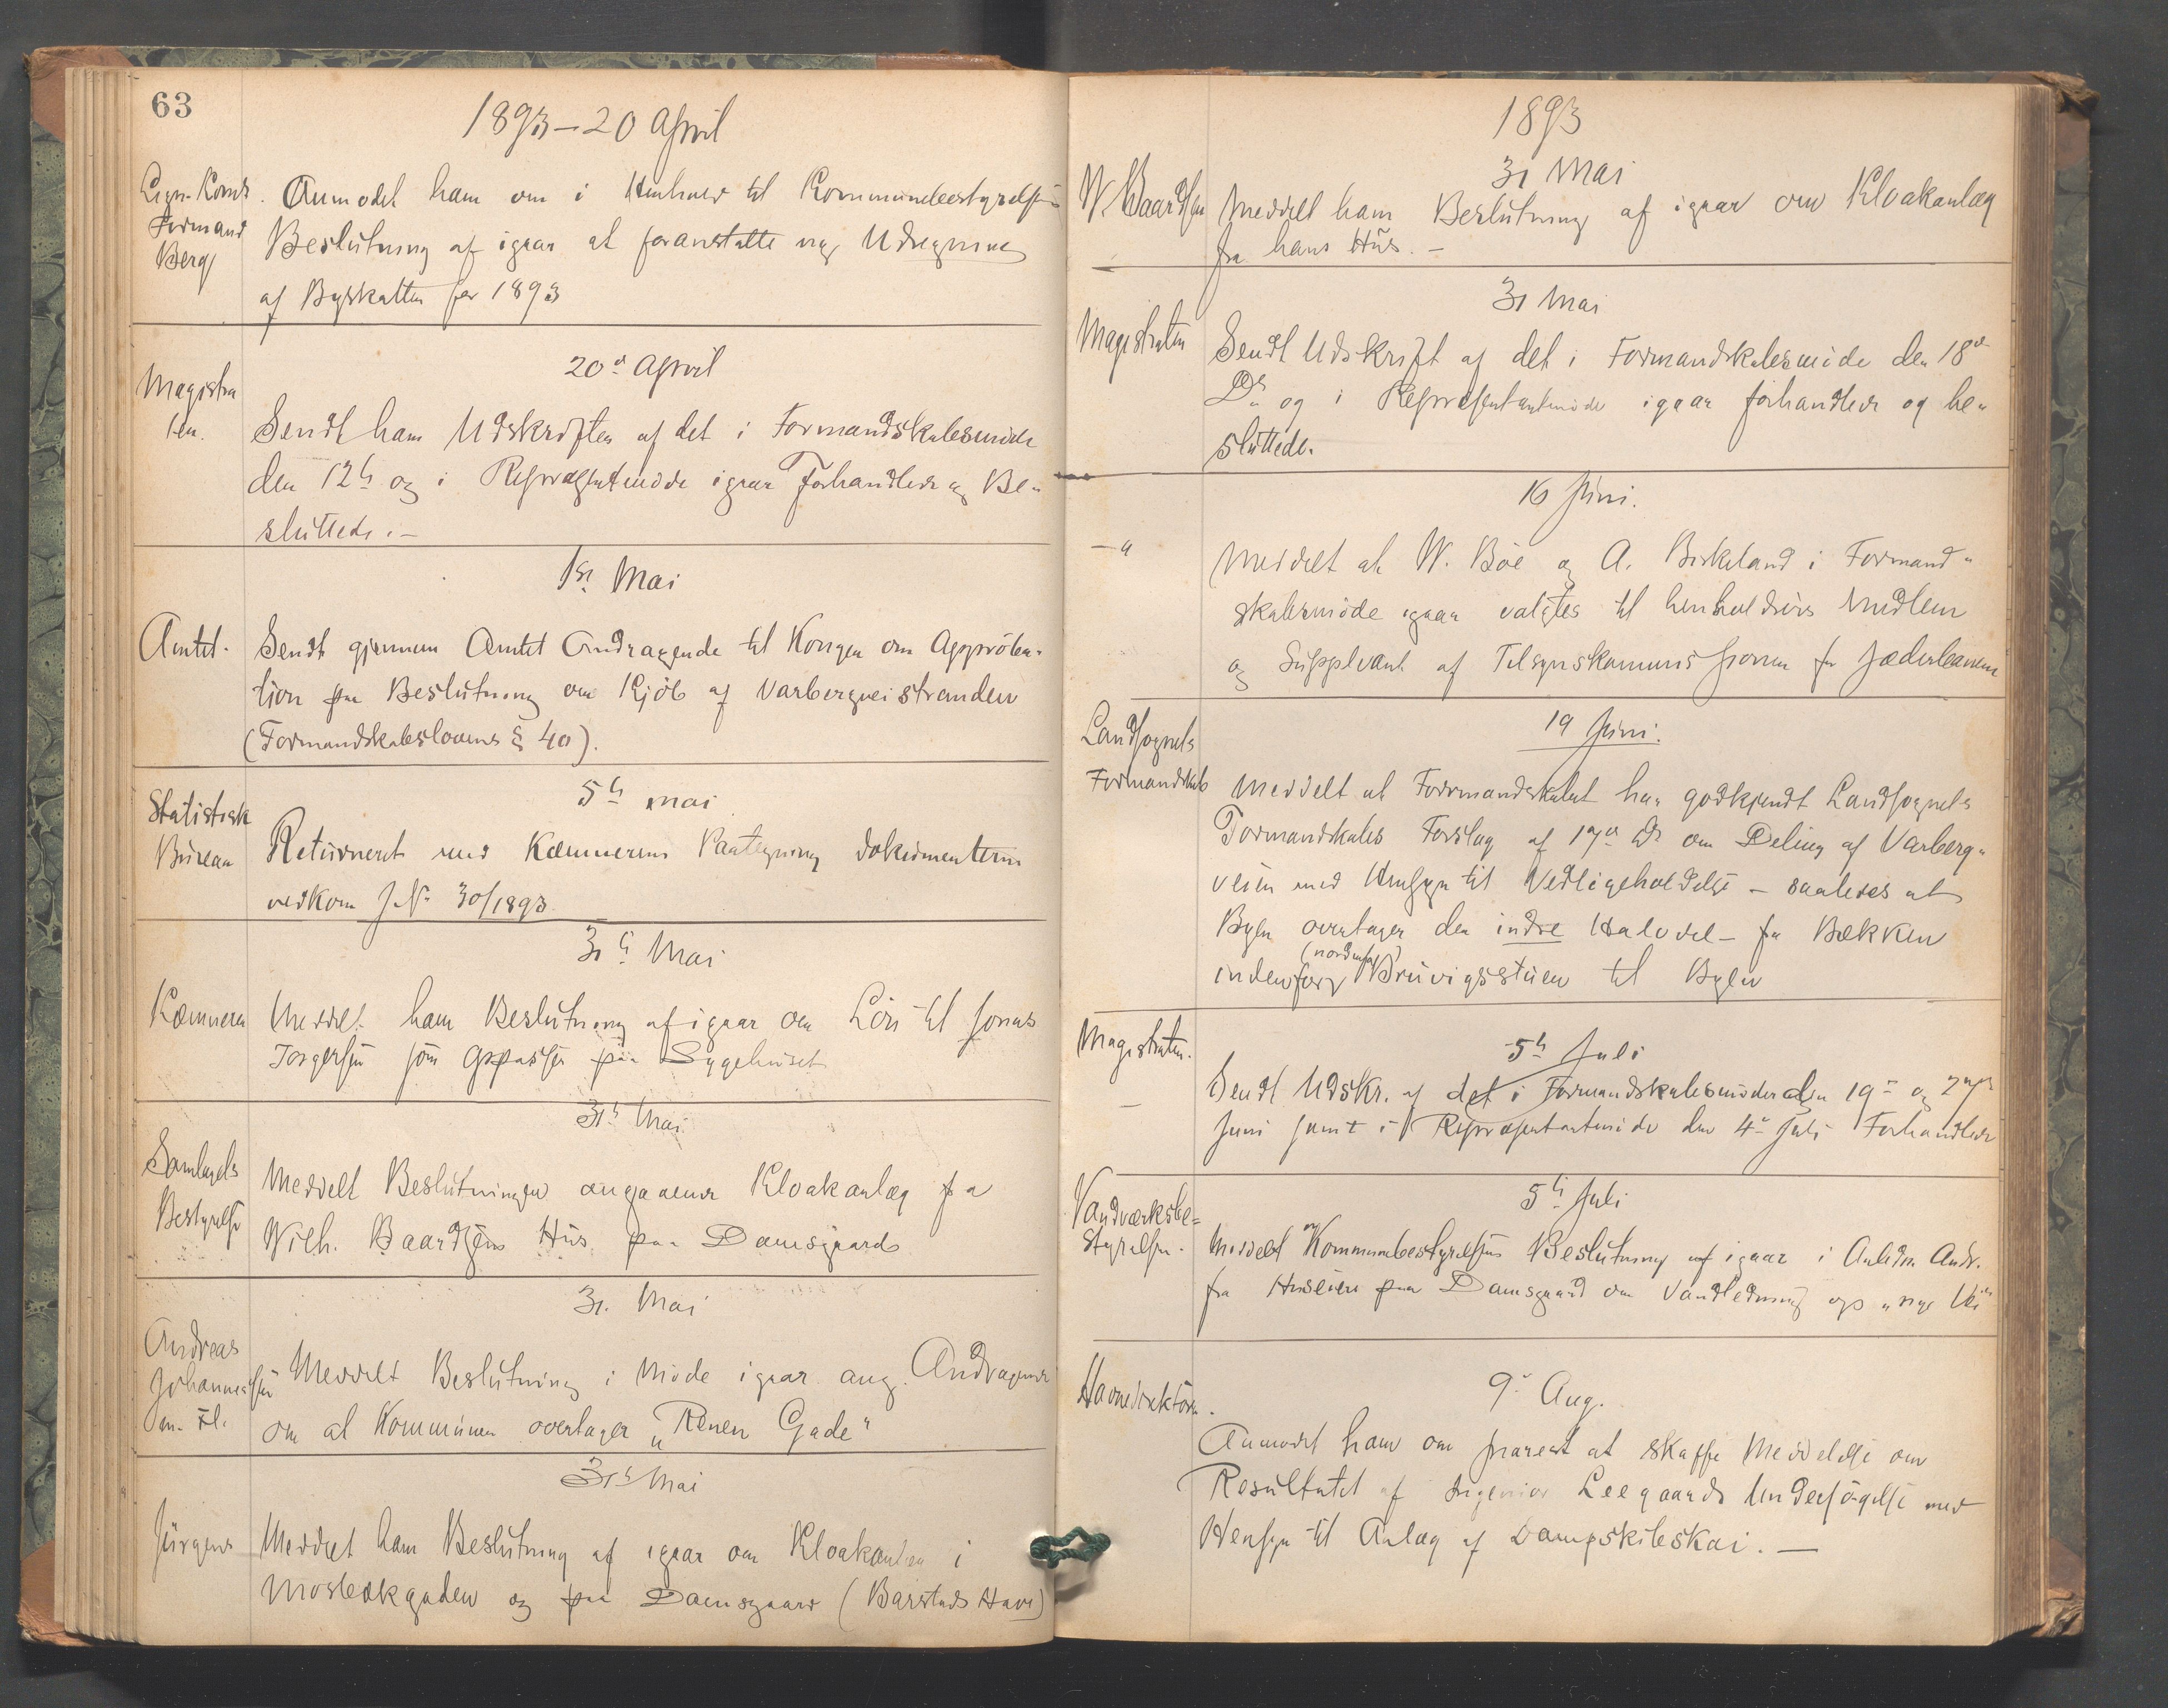 63
1893 – 20 April
Lign. Koms
Formand
Berg
Anmodet ham om i Henhold til Kommunebestyrelsens
Beslutning af igaar at foranstalte ny Udregning
af Byskatten for 1893
20de April
Magistra
ten.
Sendt ham Udskriften af det i Formandskabsmöde
den 12te og i Repræsentmöde igaar Forhandlede og Be-
sluttede. –
1ste Mai
Amtet.
Sendt gjennem Amtet Andragende til Kongen om Approba-
tion paa Beslutning om Kjöb af Varbergveistranden
(Formandskabslovens § 40).
5te Mai
Statistisk
Bureau
Returneret med Kæmnerens Paategning dokumenterne
vedkom J. No 30/1893
31te Mai
Kæmneren
Meddelt ham Beslutning af igaar om Lön til Jonas
Torgersen som Gjpasser paa Sygehuset
31te Mai
Samlagets
Bestyrelse
Meddelt Beslutningen angaaende Kloakanlæg fra
Wilh. Baardsens Hus paa Damsgaard
31. Mai
Andreas
Johannessen
m. Fl.
Meddelt Beslutning i Möde igaar ang. Andragende
om at Kommunen overtager "Renen Gade"
31te Mai
Jürgens
Meddelt ham Beslutning af igaar om Kloakanlæg i
Mosbækgaden og paa Damsgaard (Barstads Have)
1893
31 Mai
W. Baardsen
Meddelt ham Beslutning af igaar om Kloakanlæg
fra hans Hus. –
31 Mai
Magistraten
Sendt Udskrift af det i Formandskabsmöde den 18de
Ds og i Repræsentantmöde igaar forhandlede og be-
sluttede.
16 Juni.
– "
Meddelt at W. Böe og A. Birkeland i Formand-
skabsmöde igaar valgtes til henholdsvis Medlem
og Suppleant af Tilsynskommissionen for Jæderbanen
19 Juni.
Landsognets
Formandskab
Meddelt at Formandskabet har godkjendt Landsognets
Formandskabs Forslag af 17de ds om Deling af Varberg-
veien med Hensyn til Vedligeholdelse – saaledes at
Byen overtager den indre Halvdel – fra Bækken
(nordenfor)
indenfor Bruvigsstuen til Byen
5te Juli
Magistraten.
–
Sendt Udskr. af det i Formandskabsmöder den 19de og 27de
Juni samt i Repræsentantmöde den 4de Juli Forhandlede
5te Juli
Vandværksbe=
styrelsen.
Meddelt Kommunebestyrelsens Beslutning af igaar i Anledn. Andr.
fra Huseiere paa Damsgaard om Vandledning op "nye Vei"
9de Aug.
Havnedirektören.
Anmodet ham om snarest at skaffe Meddelelse om
Resultatet af Ingeniör Leegaards Undersögelse med
Hensyn til Anlæg af Dampskibskai. –